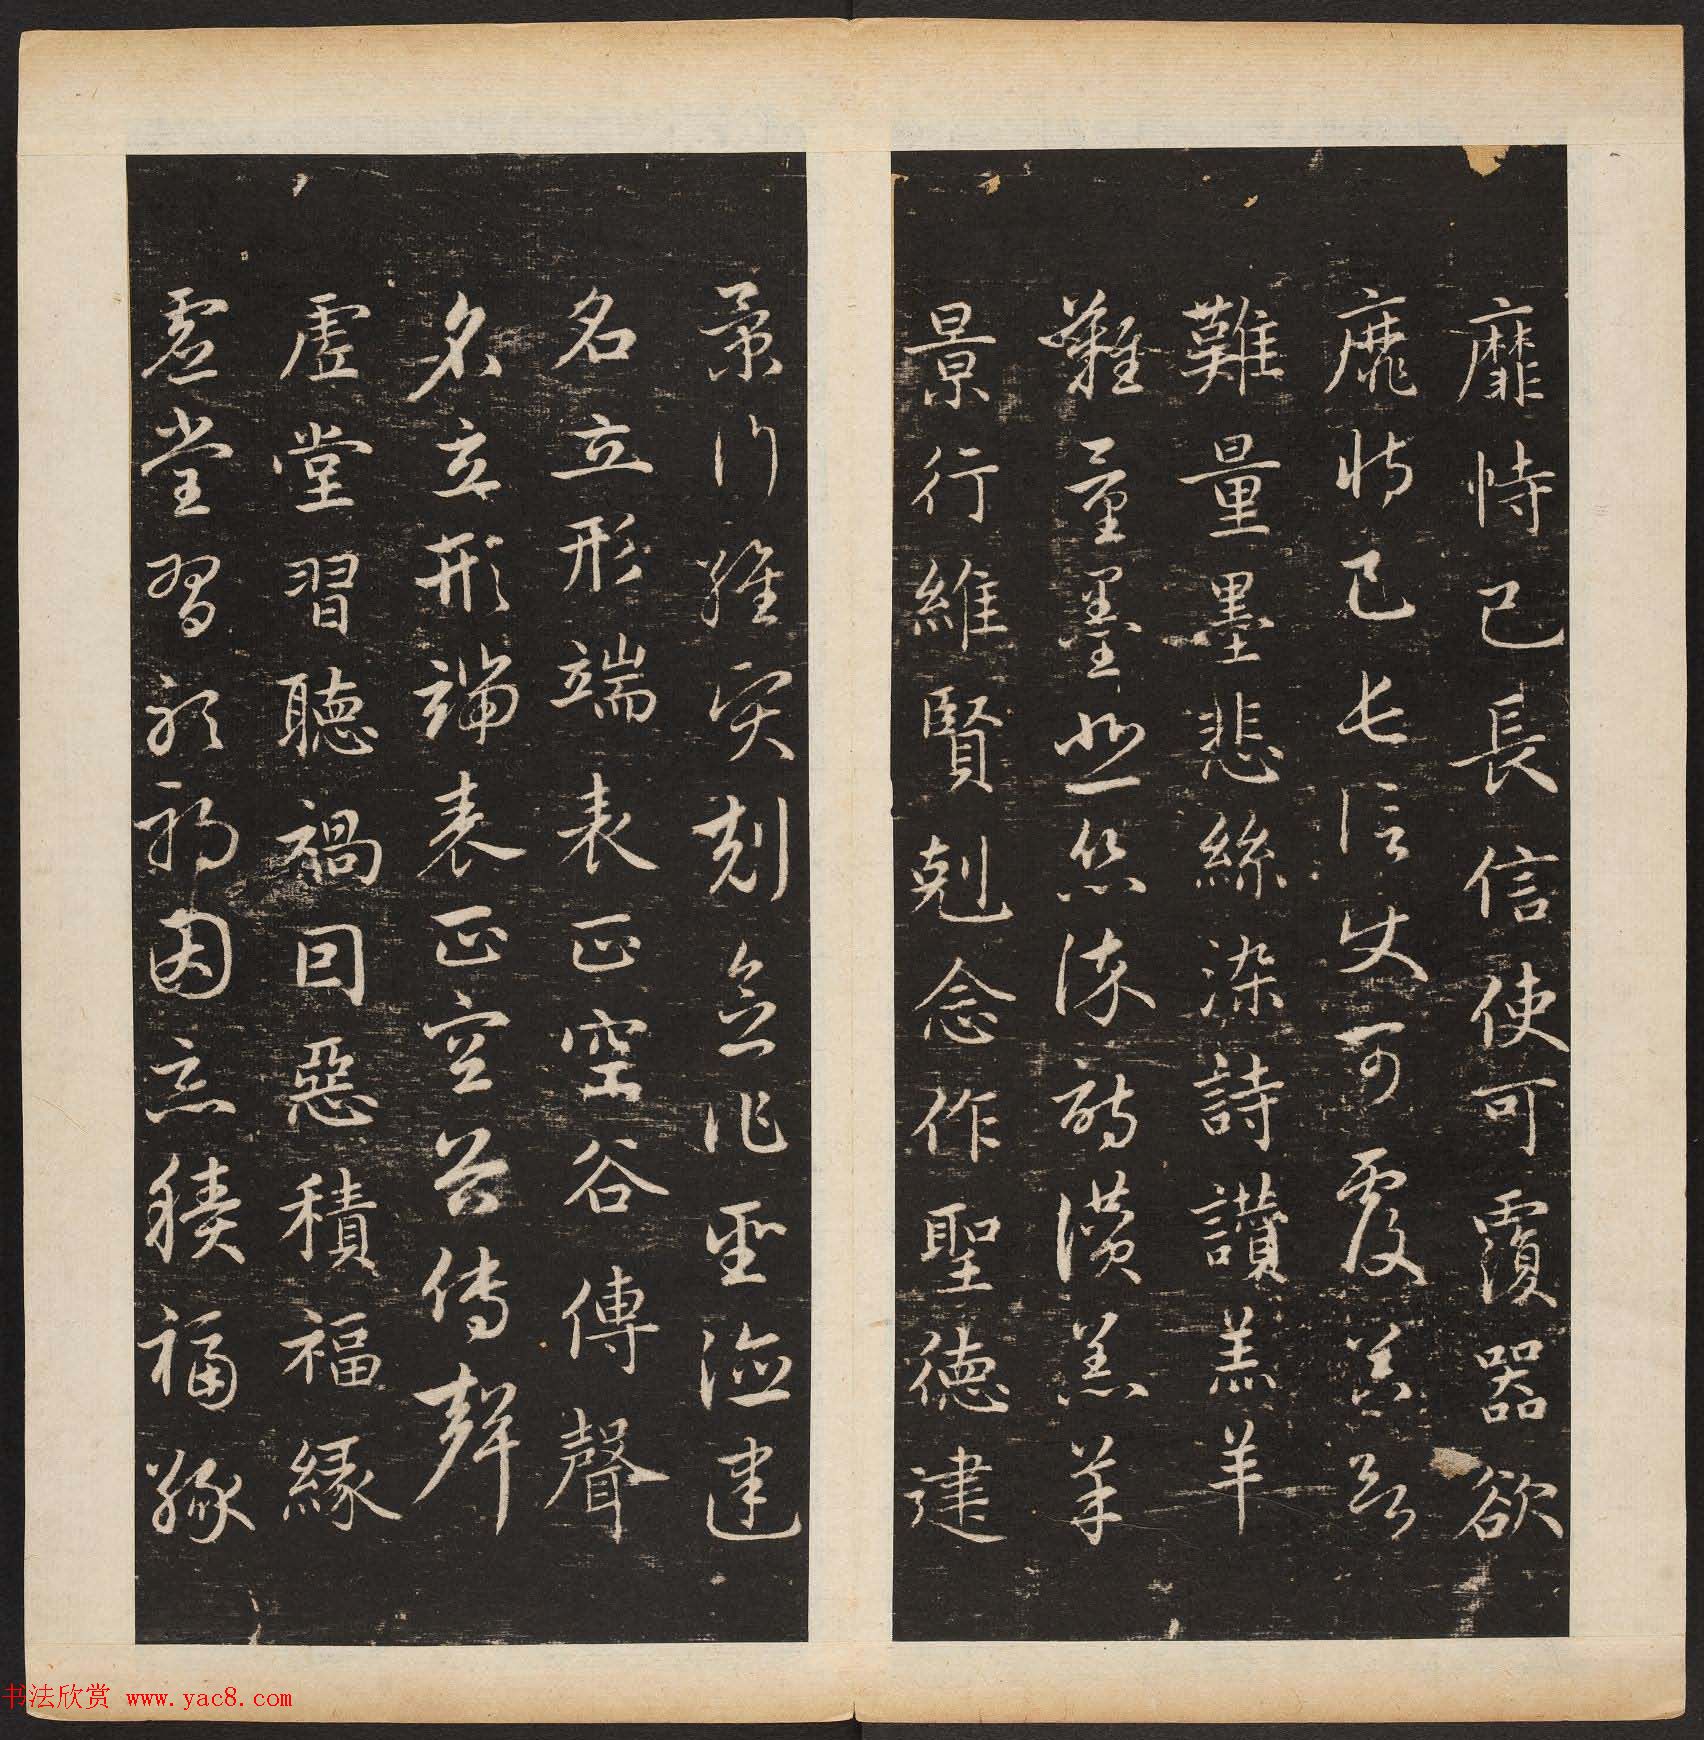 靡恃己長信使可覆器欲
靡恃己長信使可覆器欲
難量墨悲絲染詩讃羔羊
難量墨悲絲染詩讃羔羊
景行維賢剋念作聖德建
景行維賢剋念作聖德建
名立形端表正空谷傳聲
名立形端表正空谷傳聲
虛堂習聽禍因惡積福緣
虛堂習聽禍因惡積福緣
书法欣赏 www.yac8.com